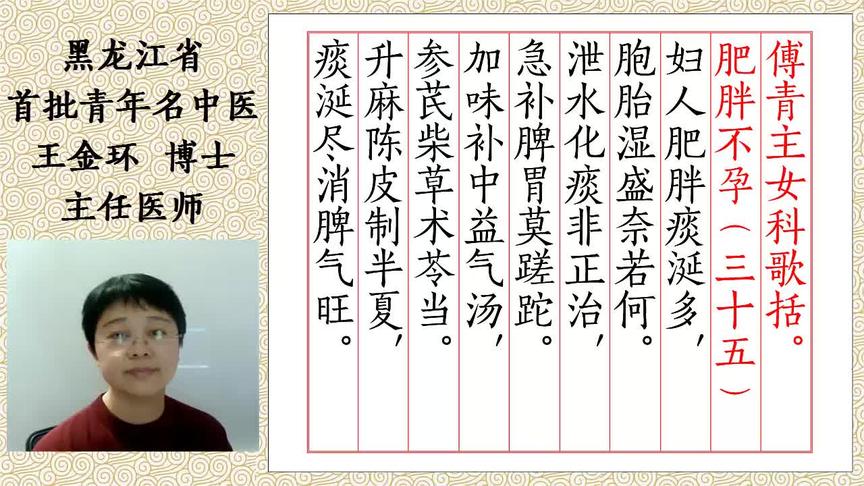 黑龙江省
首批青年名中医
王金环 博士
主任医师
傅青主女科歌括。
肥胖不孕（三十五）
妇人肥胖痰涎多，
胞胎湿盛奈若何。
泄水化痰非正治，
急补脾胃莫蹉跎。
加味补中益气汤，
参芪柴草术苓当。
升麻陈皮制半夏，
痰涎尽消脾气旺。